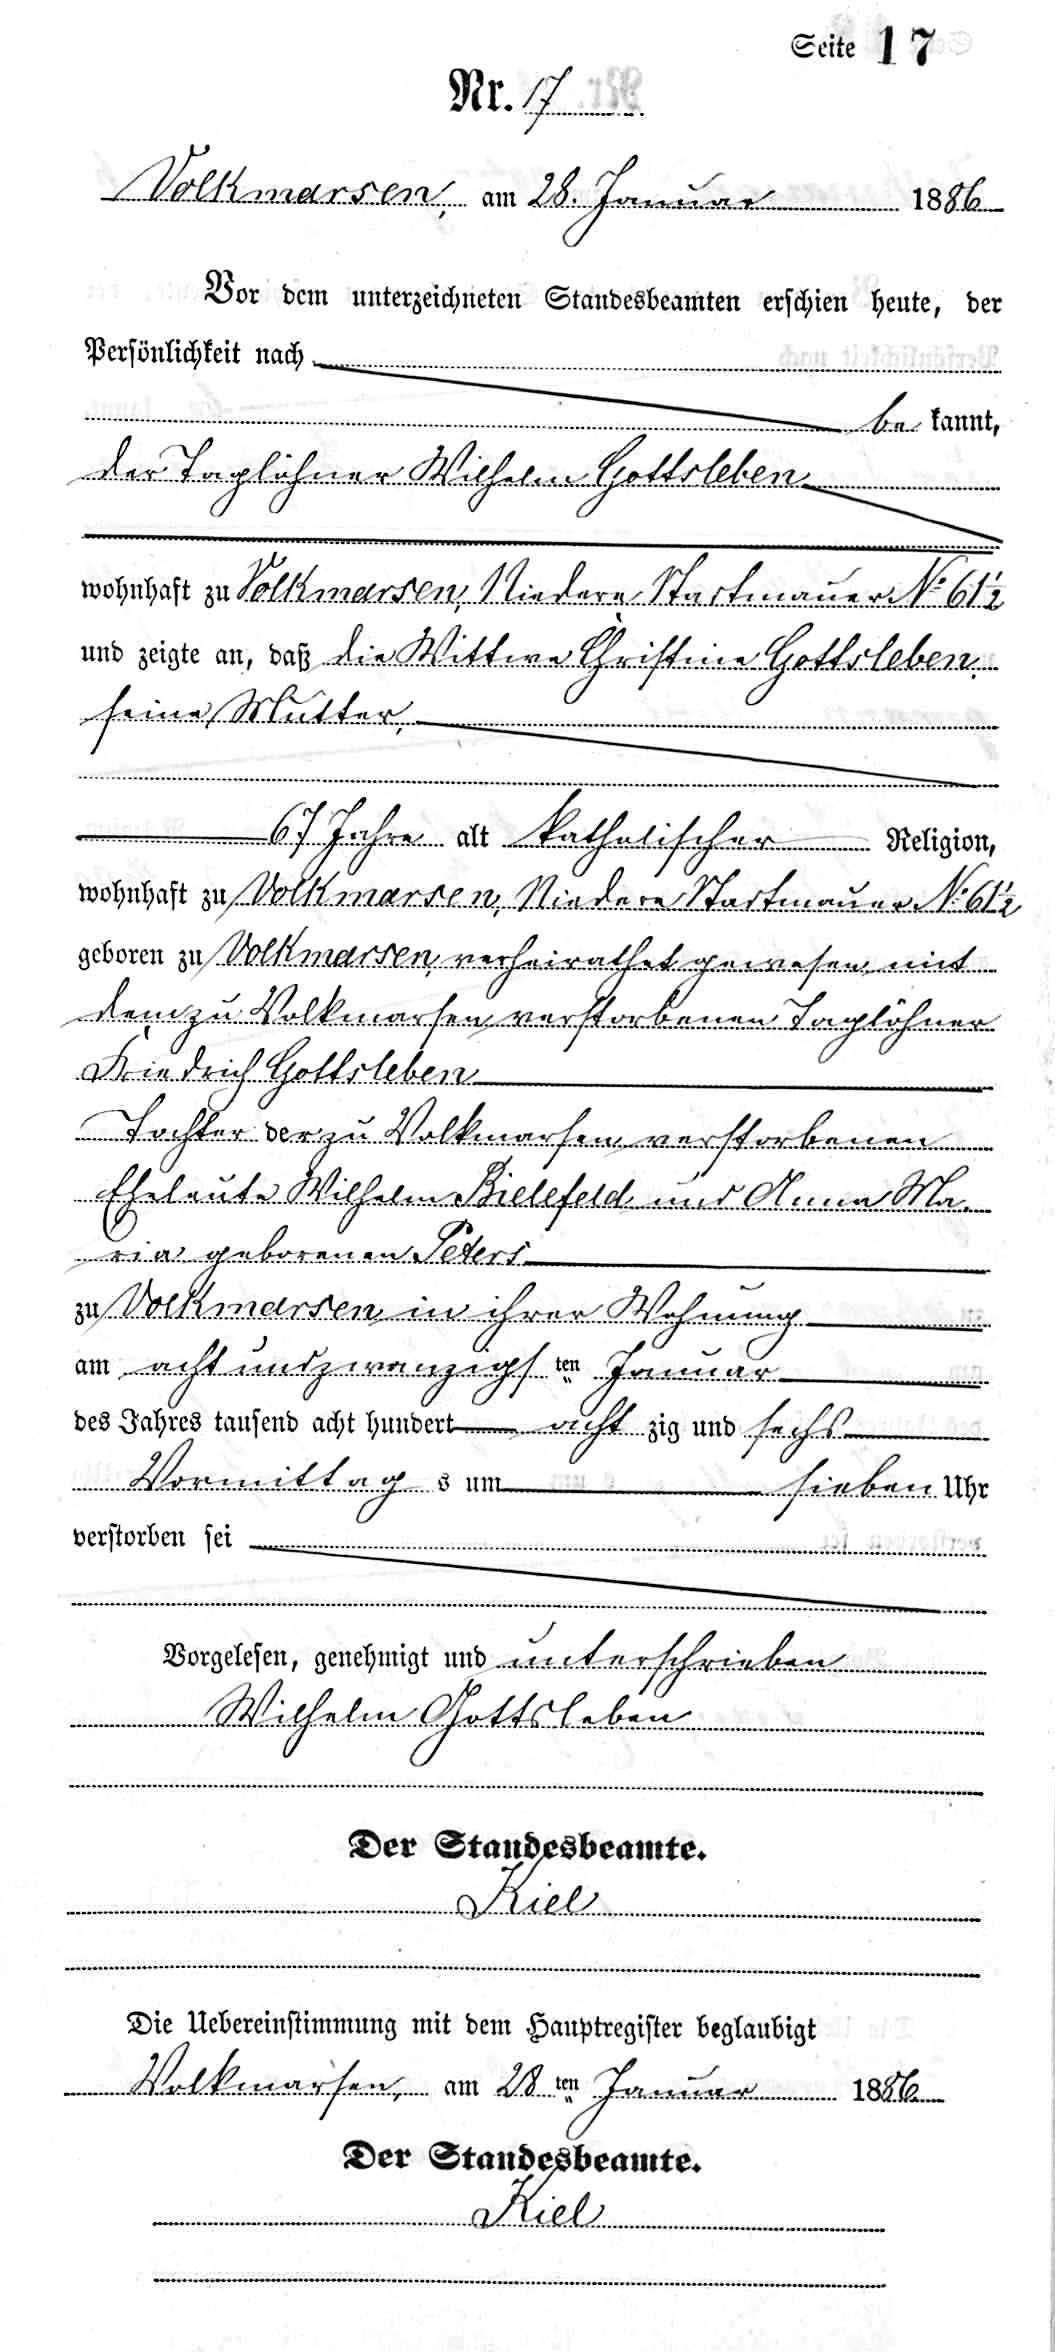 Seite 17
Nr. 17
Volkmarsen, am 28. Januar 1886
Vor dem unterzeichneten Standesbeamten erschien heute, der
Persönlichkeit nach
be kannt,
der Taglöhner Wilhelm Gottsleben
wohnhaft zu Volkmarsen, Niedere Stadtmauer No 61 1/2
und zeigte an, daß die Wittwe Christine Gottsleben,
seine Mutter,
67 Jahre alt katholischer Religion,
wohnhaft zu Volkmarsen, Niedere Stadtmauer No 61 1/2
geboren zu Volkmarsen, verheirathet gewesen mit
dem zu Volkmarsen verstorbenen Taglöhner
Friedrich Gottsleben
Tochter der zu Volkmarsen verstorbenen
Eheleute Wilhelm Bielefeld und Anna Ma-
ria geborenen Peters
zu Volkmarsen in ihrer Wohnung
am acht und zwanzigs ten Januar
des Jahres tausend acht hundert acht zig und sechs
Vormittag s um sieben Uhr
verstorben sei
Vorgelesen, genehmigt und unterschrieben
Wilhelm Gottsleben
Der Standesbeamte.
Kiel
Die Uebereinstimmung mit dem Hauptregister beglaubigt
Volkmarsen, am 28 ten Januar 1886
Der Standesbeamte.
Kiel